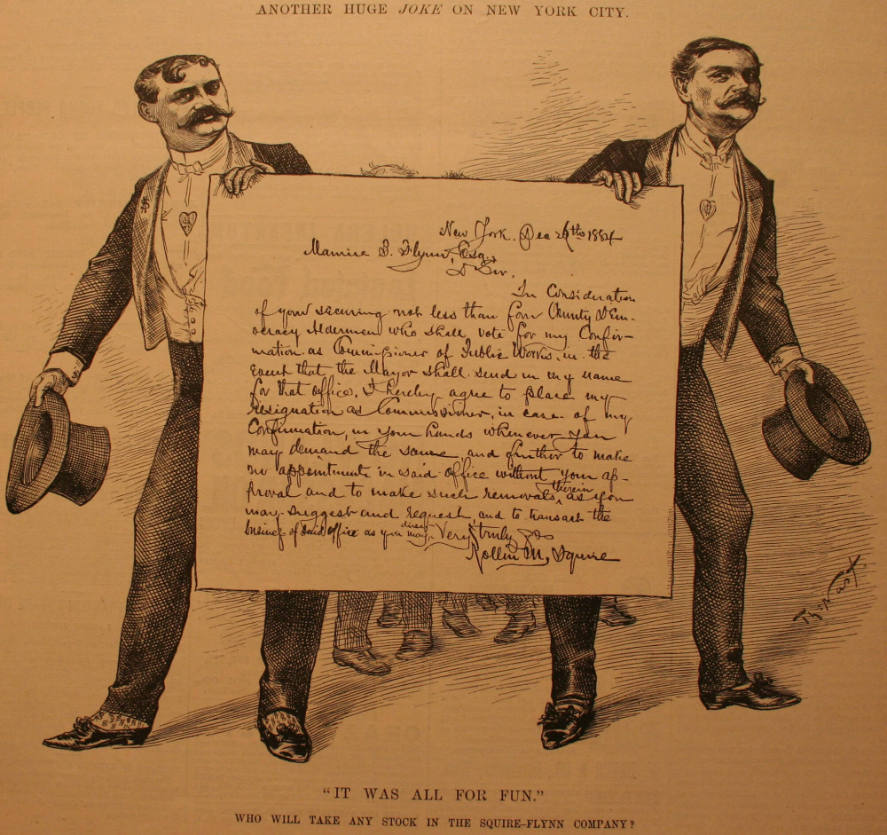 ANOTHER HUGE JOKE ON NEW YORK CITY.
New York, Dec 26th 1884
Maurice B. Flynn, Esq,
D Sir,
In Consideration
of your securing not less than four County Dem-
ocracy Aldermen who shall vote for my Confir-
mation as Commissioner of Public Works, in the
event that the Mayor shall send in my name
for that office, I hereby agree to place my
resignation as Commissioner, in case of my
Confirmation, in your hands whenever you
may demand the same, and further to make
no appointment in said office without your ap-
proval and to make such removals therein as you
may suggest and request and to transact the
business of said office as you may direct
Very truly yrs
Rollin M. Squire
Th: Nast
"IT WAS ALL FOR FUN."
WHO WILL TAKE ANY STOCK IN THE SQUIRE-FLYNN COMPANY?